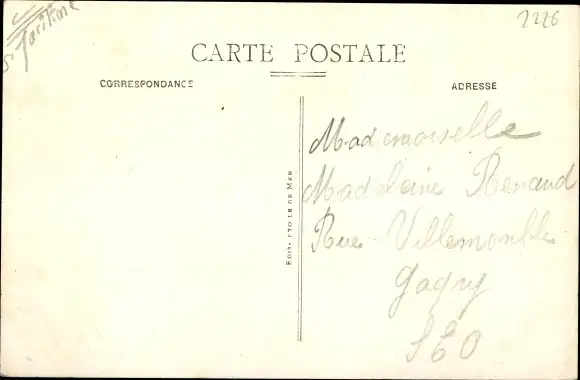 2226
CARTE POSTALE
CORRESPONDANCE
ADRESSE
Mademoiselle
Madeleine Renaud
Rue Villemomble
Gagny
S E O
EDIT. ETOILE DE MER